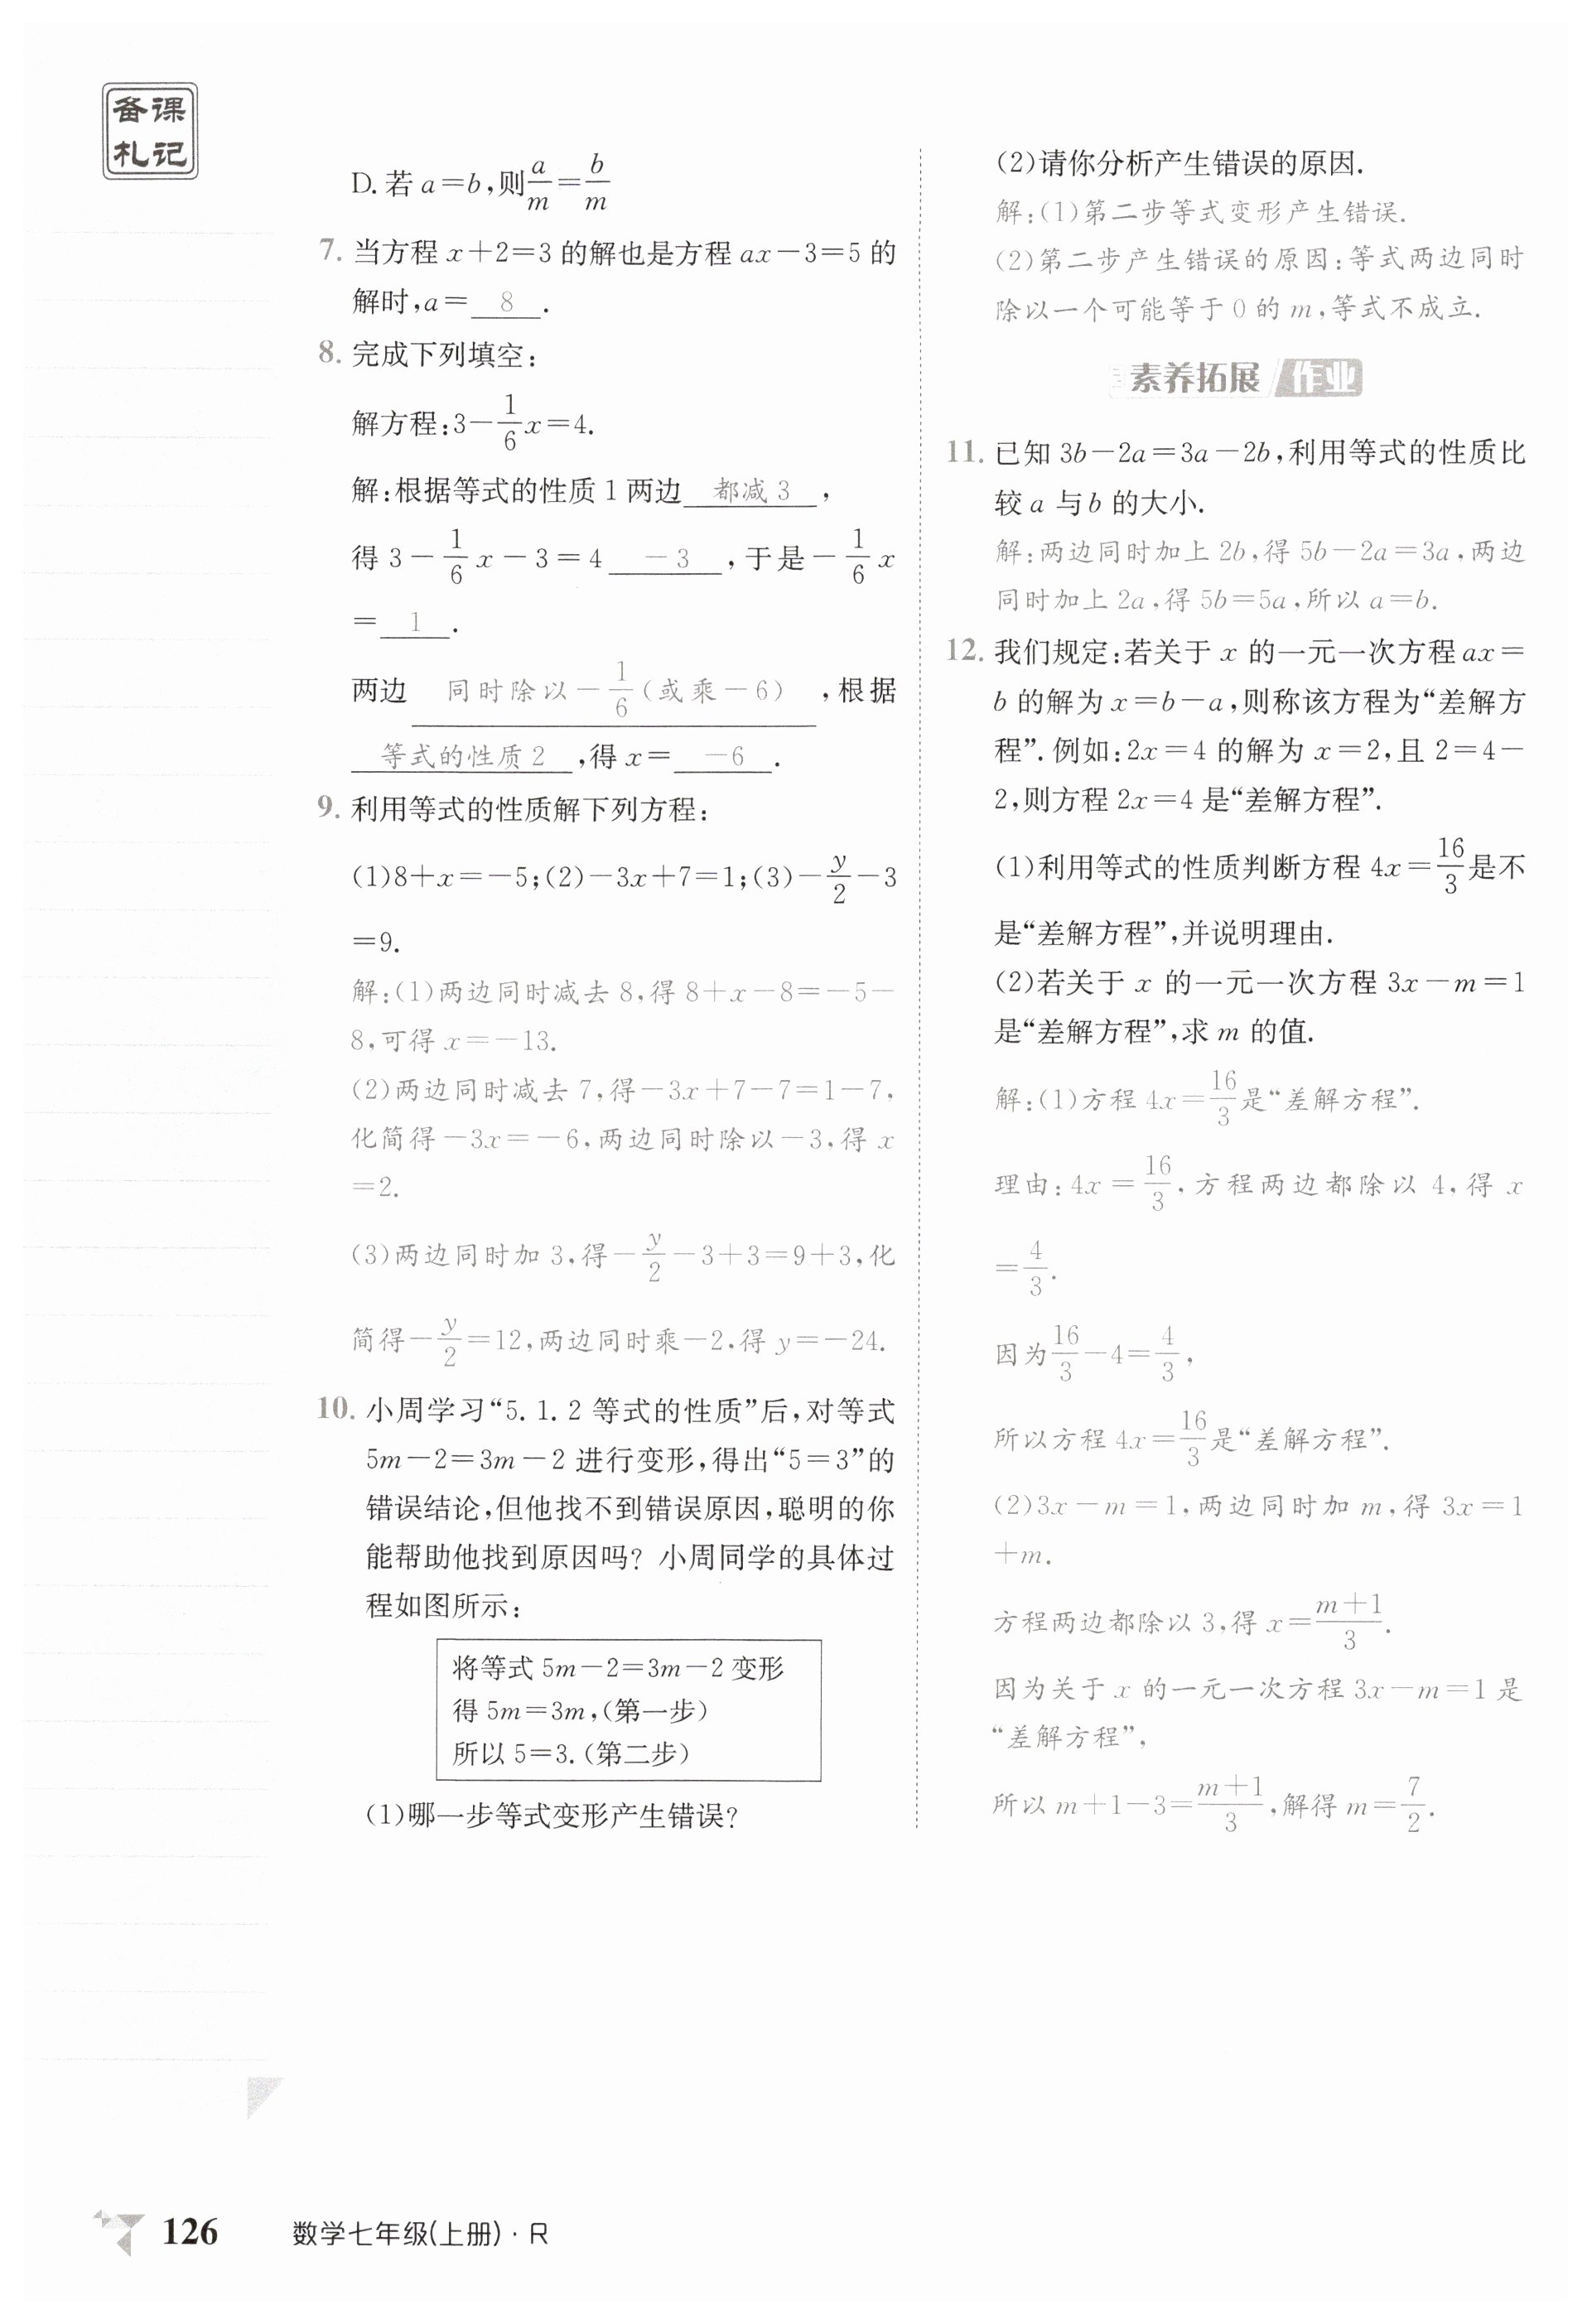 备课
札记
D. 若 a=b,则a/m=b/m
7. 当方程 x+2=3 的解也是方程 ax-3=5 的
解时,a= 8 .
8. 完成下列填空:
解方程:3-1/6x=4.
解:根据等式的性质 1 两边 都减 3 ,
得 3-1/6x-3=4 -3 ,于是-1/6x
= 1 .
两边 同时除以-1/6(或乘-6) ,根据
等式的性质 2 ,得 x= -6 .
9. 利用等式的性质解下列方程:
(1)8+x=-5;(2)-3x+7=1;(3)-y/2-3
=9.
解:(1)两边同时减去 8,得 8+x-8=-5-
8,可得 x=-13.
(2)两边同时减去 7,得-3x+7-7=1-7,
化简得-3x=-6,两边同时除以-3,得 x
=2.
(3)两边同时加 3,得-y/2-3+3=9+3,化
简得-y/2=12,两边同时乘-2,得 y=-24.
10. 小周学习“5. 1. 2 等式的性质”后,对等式
5m-2=3m-2 进行变形,得出“5=3”的
错误结论,但他找不到错误原因,聪明的你
能帮助他找到原因吗? 小周同学的具体过
程如图所示:
将等式 5m-2=3m-2 变形
得 5m=3m,(第一步)
所以 5=3.(第二步)
(1)哪一步等式变形产生错误?
(2)请你分析产生错误的原因.
解:(1)第二步等式变形产生错误.
(2)第二步产生错误的原因:等式两边同时
除以一个可能等于 0 的 m,等式不成立.
素养拓展 作业
11. 已知 3b-2a=3a-2b,利用等式的性质比
较 a 与 b 的大小.
解:两边同时加上 2b,得 5b-2a=3a,两边
同时加上 2a,得 5b=5a,所以 a=b.
12. 我们规定:若关于 x 的一元一次方程 ax=
b 的解为 x=b-a,则称该方程为“差解方
程”. 例如:2x=4 的解为 x=2,且 2=4-
2,则方程 2x=4 是“差解方程”.
(1)利用等式的性质判断方程 4x=16/3是不
是“差解方程”,并说明理由.
(2)若关于 x 的一元一次方程 3x-m=1
是“差解方程”,求 m 的值.
解:(1)方程 4x=16/3是“差解方程”.
理由:4x=16/3,方程两边都除以 4,得 x
=4/3.
因为16/3-4=4/3,
所以方程 4x=16/3是“差解方程”.
(2)3x-m=1,两边同时加 m,得 3x=1
+m.
方程两边都除以 3,得 x=(m+1)/3.
因为关于 x 的一元一次方程 3x-m=1 是
“差解方程”,
所以 m+1-3=(m+1)/3,解得 m=7/2.
126 数学七年级(上册)·R